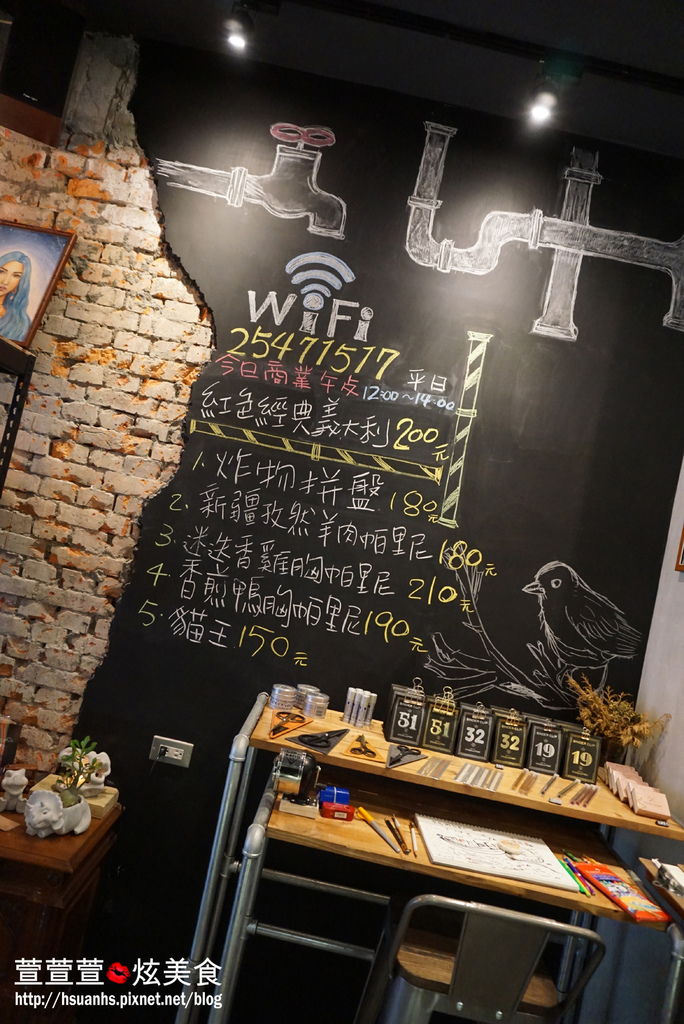 WiFi
25471517
今日商業午歺 平日
12:00~14:00
紅色經典義大利 200元
1. 炸物拼盤 180元
2. 新疆孜然羊肉帕里尼 180元
3. 迷迭香雞胸帕里尼 210元
4. 香煎鴨胸帕里尼 190元
5. 貓王 150元
51 51 32 32 19 19
萱萱萱 炫美食
http://hsuanhs.pixnet.net/blog